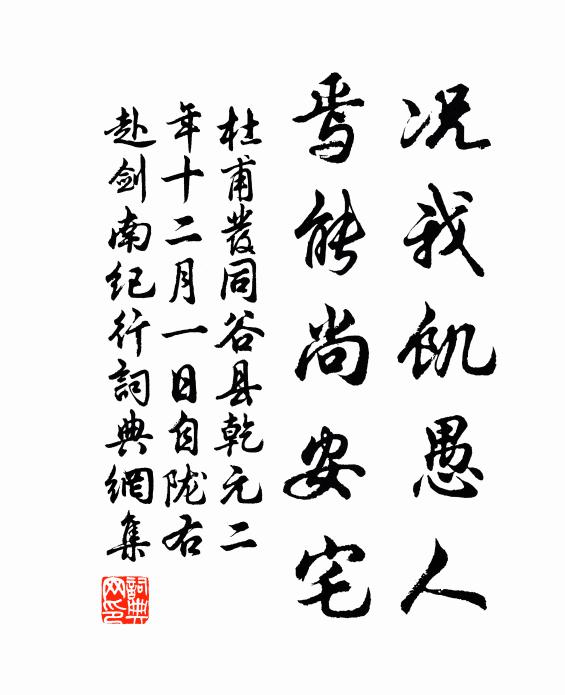 况我飢愚人
焉能尚安宅
杜甫發同谷县乾元二
年十二月一日自陇右
赴劍南纪行詞典網集
詞典
网印